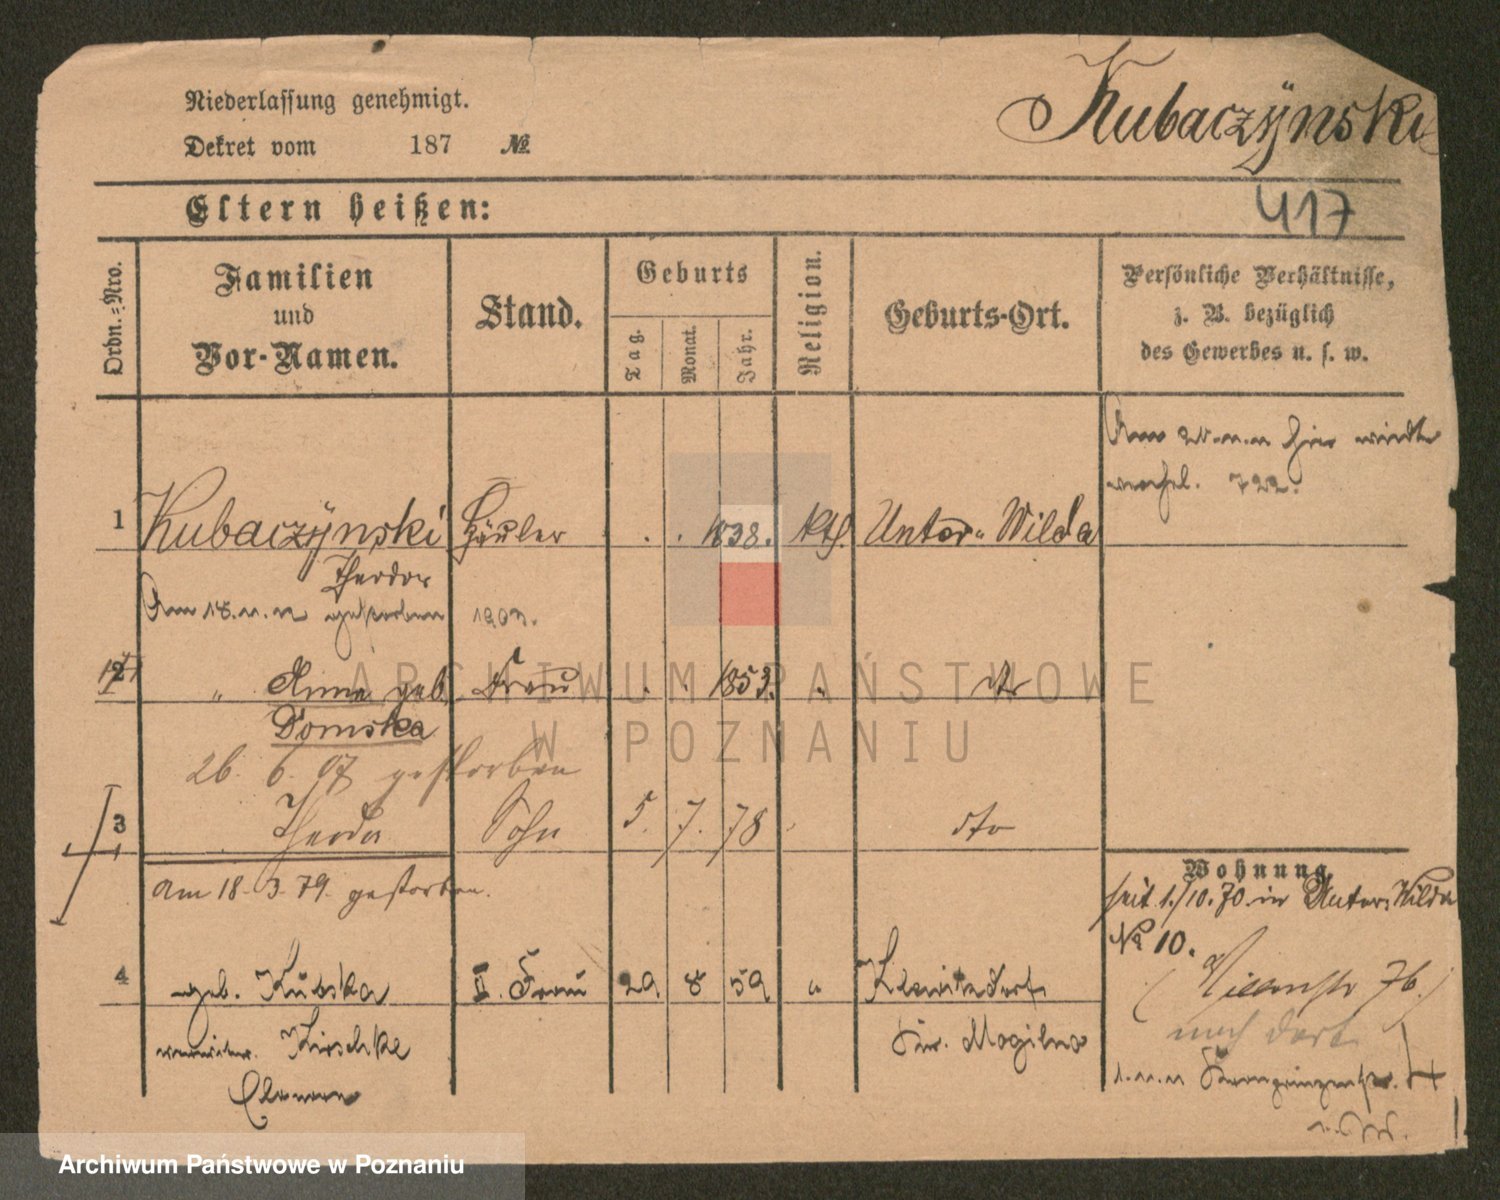 Niederlassung genehmigt.
Dekret vom 187 №
Kubaczÿnski
417
Eltern heißen:
Ordn.-Nro.
Familien
und
Vor-Namen.
Stand.
Geburts
Tag.
Monat.
Jahr.
Religion.
Geburts-Ort.
Persönliche Verhältnisse,
z. B. bezüglich
des Gewerbes u. s. w.
1 Kubaczÿnski Häusler . . 1838. kth. Unter-Wilda
Theodor
gestorben 1903.
2 " Anna geb. Frau . . 1853. " dto
Domska
26. 6. 07 gestorben
3 Theodor Sohn 5. 7. 78 dto
am 18. 3. 79. gestorben.
Wohnung.
seit 1./10.70. in Unter-Wilda
№ 10.
4 geb. Kubska II. Frau 29 8 59 " 
Kirschke
Kr. Mogilno
76.
noch dort
Kronprinzenstr.
ARCHIWUM PAŃSTWOWE
W POZNANIU
Archiwum Państwowe w Poznaniu